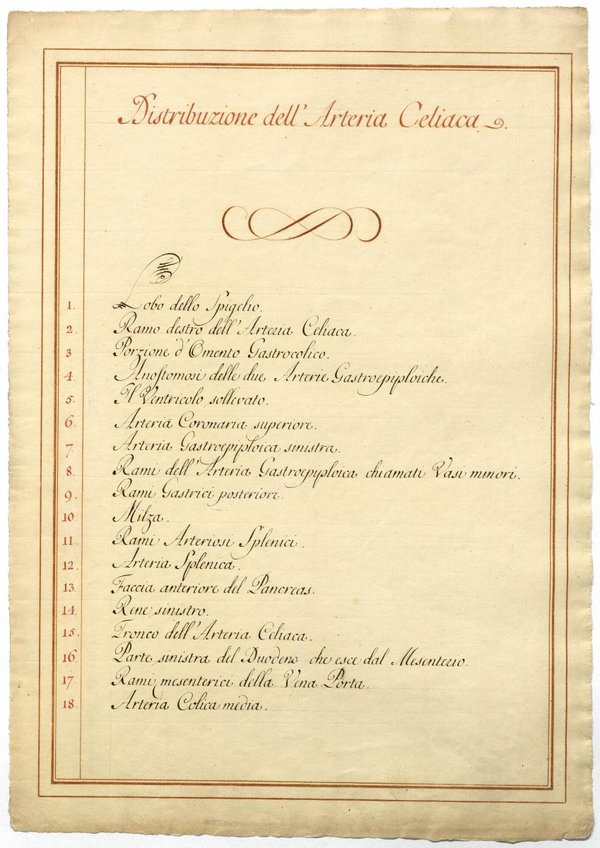 Distribuzione dell'Arteria Celiaca.
1. Lobo dello Spigelio.
2. Ramo destro dell'Arteria Celiaca.
3 Porzione d'Omento Gastrocolico.
4 Anostomosi delle due Arterie Gastroepiploiche.
5. Il Ventricolo sollevato.
6. Arteria Coronaria superiore.
7. Arteria Gastroepiploica sinistra.
8. Rami dell'Arteria Gastroepiploica chiamati Vasi minori.
9. Rami Gastrici posteriori.
10. Milza.
11. Rami Arteriosi Splenici.
12. Arteria Splenica.
13. Faccia anteriore del Pancreas.
14. Rene sinistro.
15. Tronco dell'Arteria Celiaca.
16 Parte sinistra del Duodeno che esce dal Mesenterio.
17. Rami mesenterici della Vena Porta.
18. Arteria Colica media.